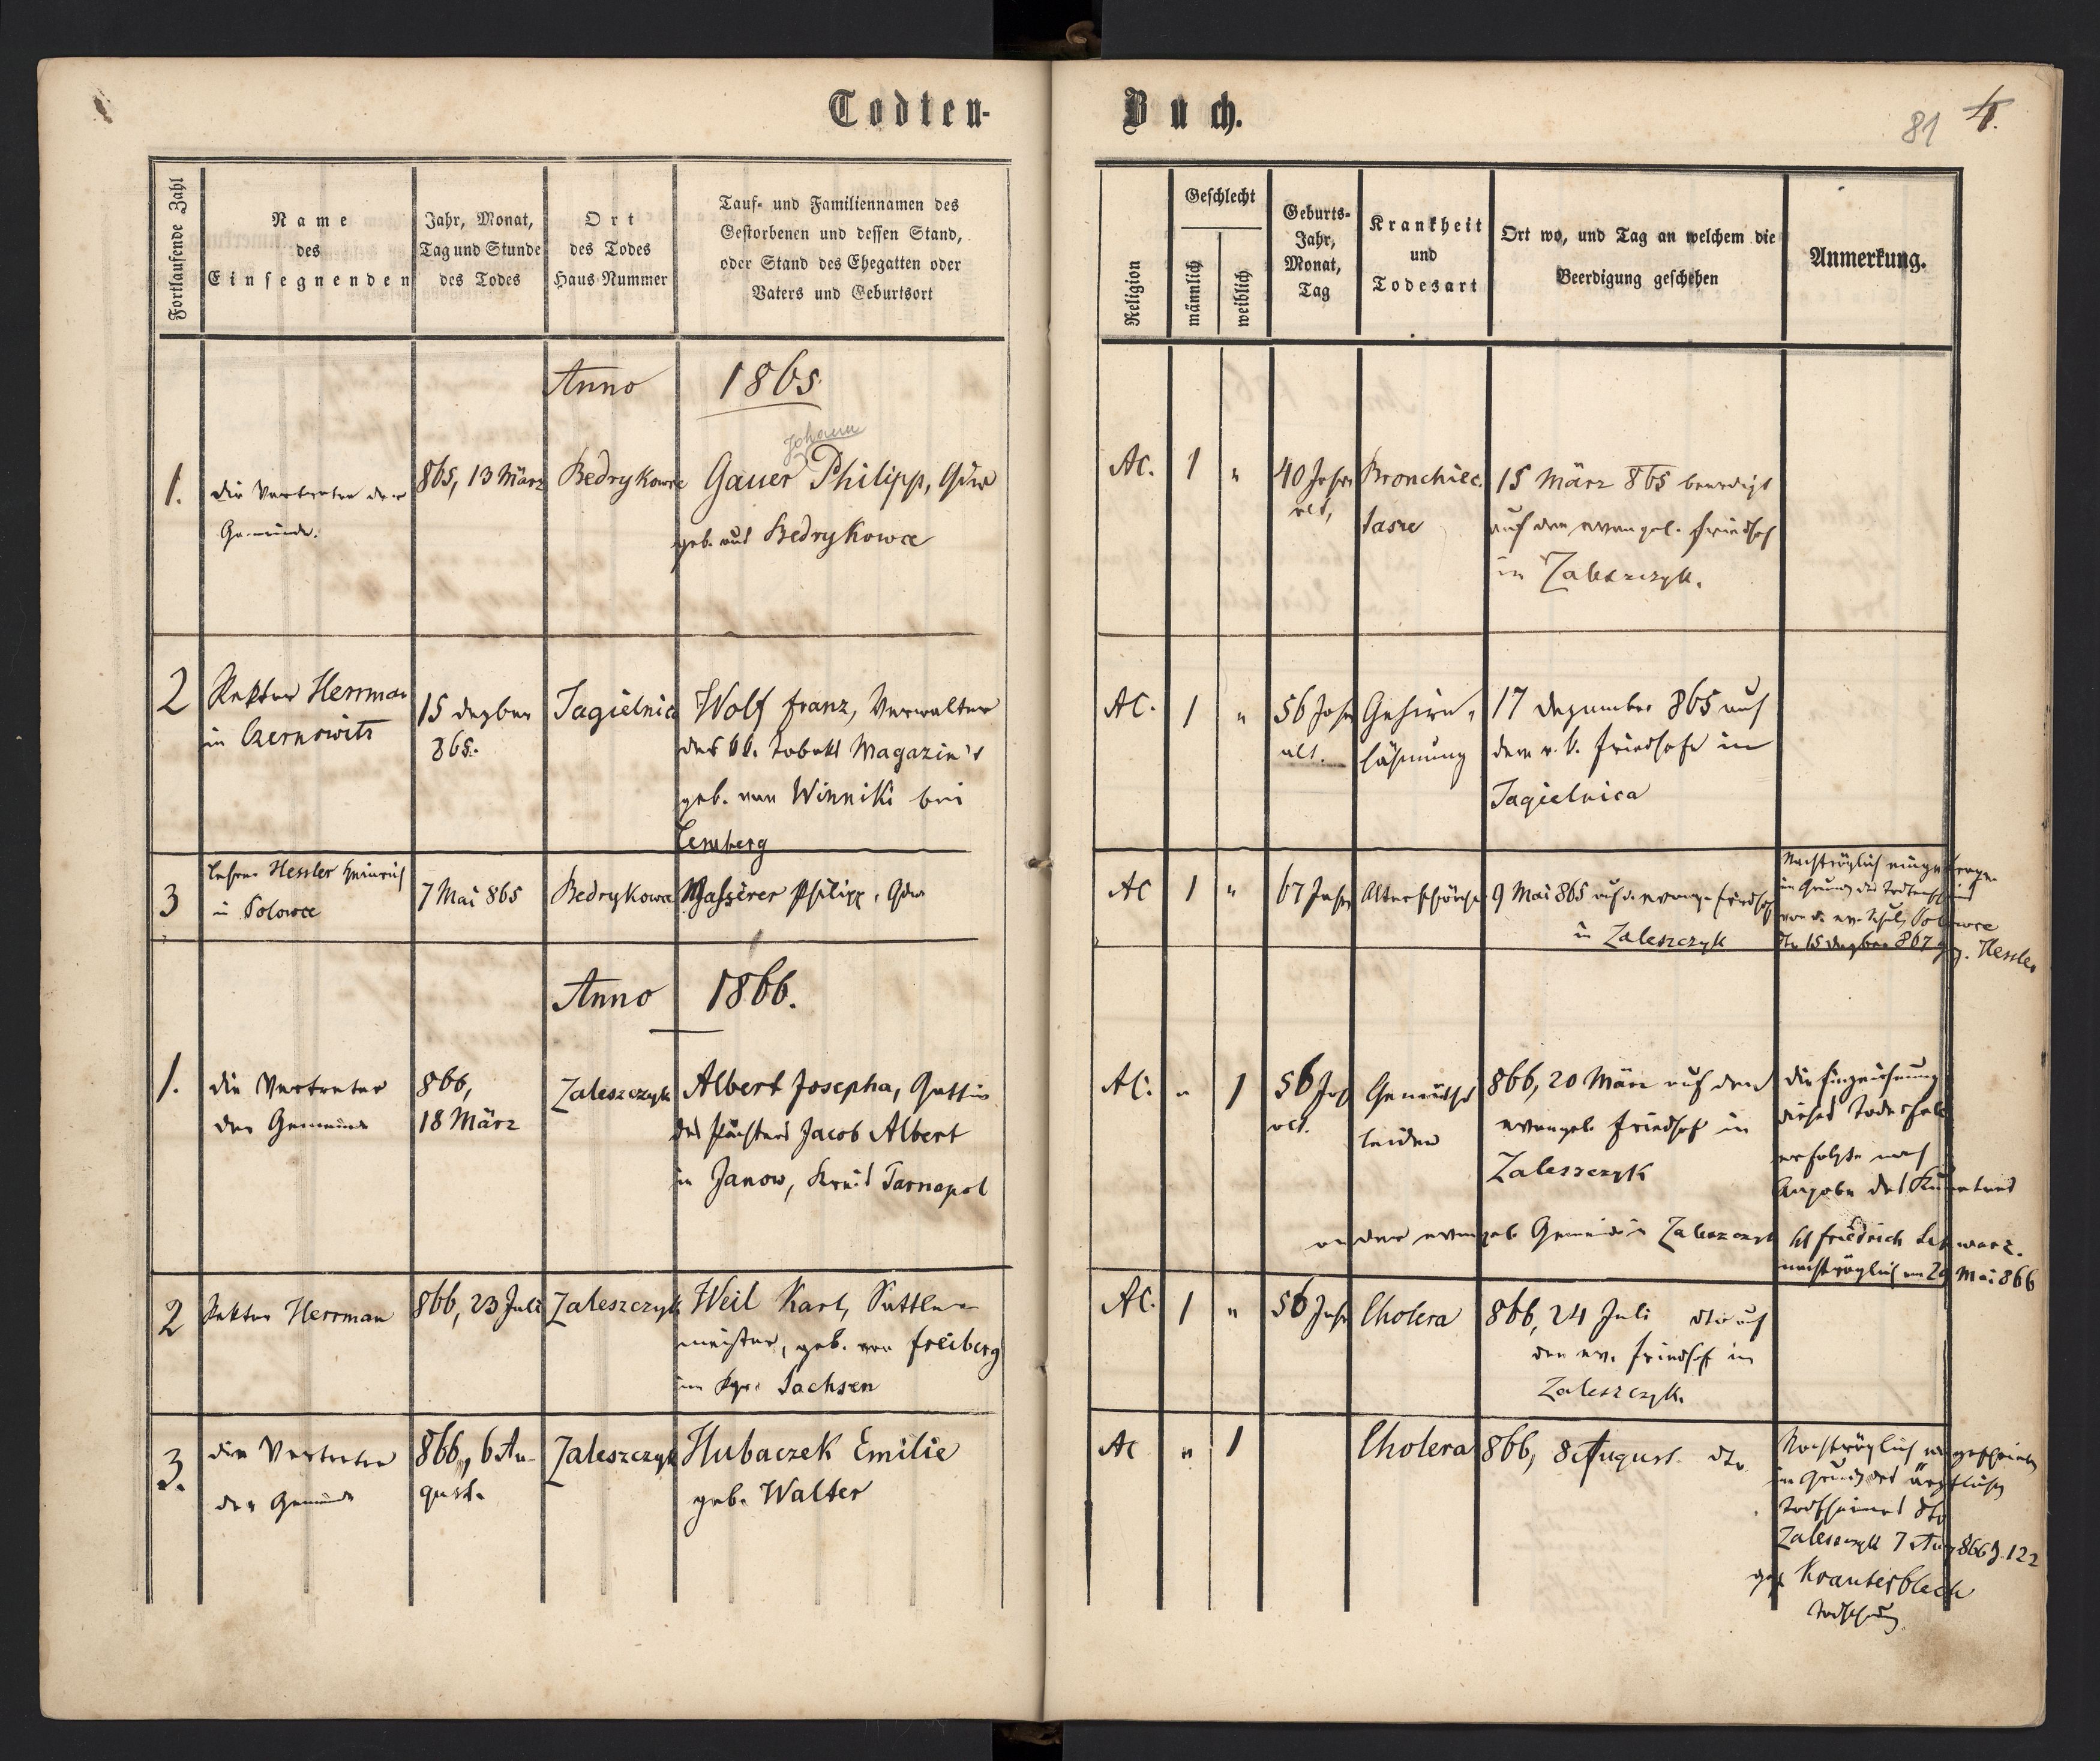 Todten-
Buch.
81
4.
Fortlaufende Zahl
Name
des
Einsegnenden
Jahr, Monat,
Tag und Stunde
des Todes
Ort
des Todes
Haus-Nummer
Tauf- und Familiennamen des
Gestorbenen und dessen Stand,
oder Stand des Ehegatten oder
Vaters und Geburtsort
Religion
Geschlecht
männlich
weiblich
Geburts-
Jahr,
Monat,
Tag
Krankheit
und
Todesart
Ort wo, und Tag an welchem die
Beerdigung geschehen
Anmerkung.
Anno 1865
1.
die Vertreter der
Gemeinde.
865, 13 März
Bedrykowce
Johann
Gauer Philipp,
geb. aus Bedrykowce
AC.
1
"
40 Jahre
alt,
Bronchiec
tasie
15 März 865 beerdigt
auf dem evangel. Friedhof
in Zaleszczyk.
2
Rektor Herrman
in Czernowitz
15 Dezber
865.
Jagielnica
Wolf Franz, Verwalter
des kk. Tabak Magazin's
geb. von Winniki bei
Lemberg
AC.
1
"
56 Jahr
alt.
Gehirn-
lähmung
17 Dezember 865 auf
dem r. k. Friedhofe in
Jagielnica
3
Lehrer Hessler Heinrich
in Polowce
7 Mai 865
Bedrykowce
Philipp,
AC
1
"
67 Jahr
Altersschwäche
9 Mai 865 auf d. evang. Friedhof
in Zaleszczyk
Nachträglich eingetragen
im Grund des Todtenscheins
von d. ev. Schule Polowce
dto 15 Dezber 867 gez. Hessler
Anno 1866.
1.
die Vertreter
der Gemeinde
866,
18 März
Zaleszczyk
Albert Josepha, Gattin
des Pächters Jacob Albert
in Janow, Kreis Tarnopol
AC.
"
1
56 Jahr
alt.
Gemüths
leiden
866, 20 März auf dem
evangel. Friedhof in
Zaleszczyk
die Einzeichnung
dieses Todesfalls
erfolgte nach
Angabe des Kurators
an der evangel. Gemeinde in Zaleszczyk H Friedrich Schwarz.
nachträglich am 20 Mai 866
2
Rektor Herrman
866, 23 Juli
Zaleszczyk
Weil Karl, Sattler
meister, geb. von Freiberg
im Kgr. Sachsen
AC.
1
"
56 Jahr
Cholera
866, 24 Juli dto auf
den ev. Friedhof in
Zaleszczyk.
3.
die Vertreter
der Gemeinde
866, 6 Au-
gust.
Zaleszczyk
Hubaczek Emilie
geb. Walter
AC
"
1
Cholera
866, 8 August dto
Nachträglich eingeschrieben
im Grund des ärztlichen
Todtscheines dto
Zaleszczyk 7 Aug 866 Z. 122
gez